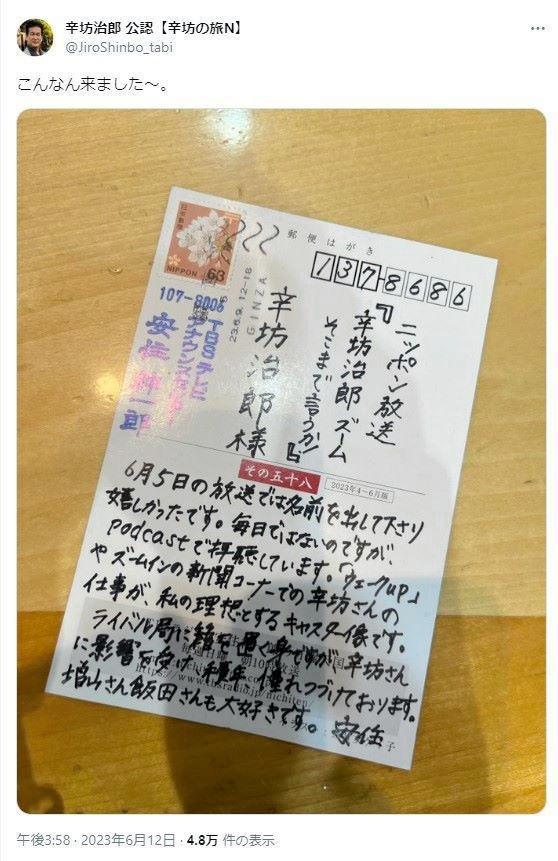 辛坊治郎 公認【辛坊の旅N】
@JiroShinbo_tabi
こんなん来ました〜。
日本郵便
NIPPON 63
23.6.9 12-18
GINZA
郵便はがき
137-8686
ニッポン放送
『辛坊治郎ズーム
そこまで言うか!』
辛坊治郎様
107-8006
TBSテレビ
アナウンス
安住紳一郎
その五十八
2023年4〜6月版
6月5日の放送では名前を出して下さり
嬉しかったです。毎日ではないのですが、
podcastで拝聴しています。「ウェークup」
やズームインの新聞コーナーでの辛坊さんの
仕事が、私の理想とするキャスター像です。
ライバル局に籍を置く身ですが辛坊さん
に影響を受け、憧れつづけております。
増山さん飯田さんも大好きです。安住
https://www.tbsradio.jp/nichiten/
午後3:58 · 2023年6月12日 · 4.8万 件の表示